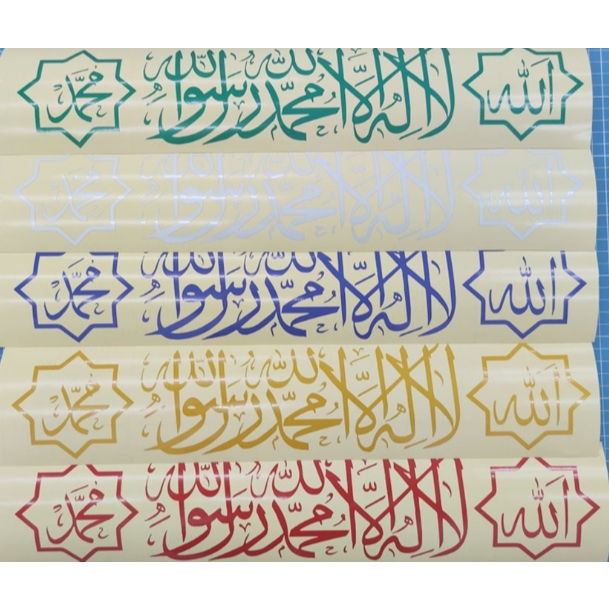 الله لا إله إلا الله محمد رسول الله محمد
الله لا إله إلا الله محمد رسول الله محمد
الله لا إله إلا الله محمد رسول الله محمد
الله لا إله إلا الله محمد رسول الله محمد
الله لا إله إلا الله محمد رسول الله محمد